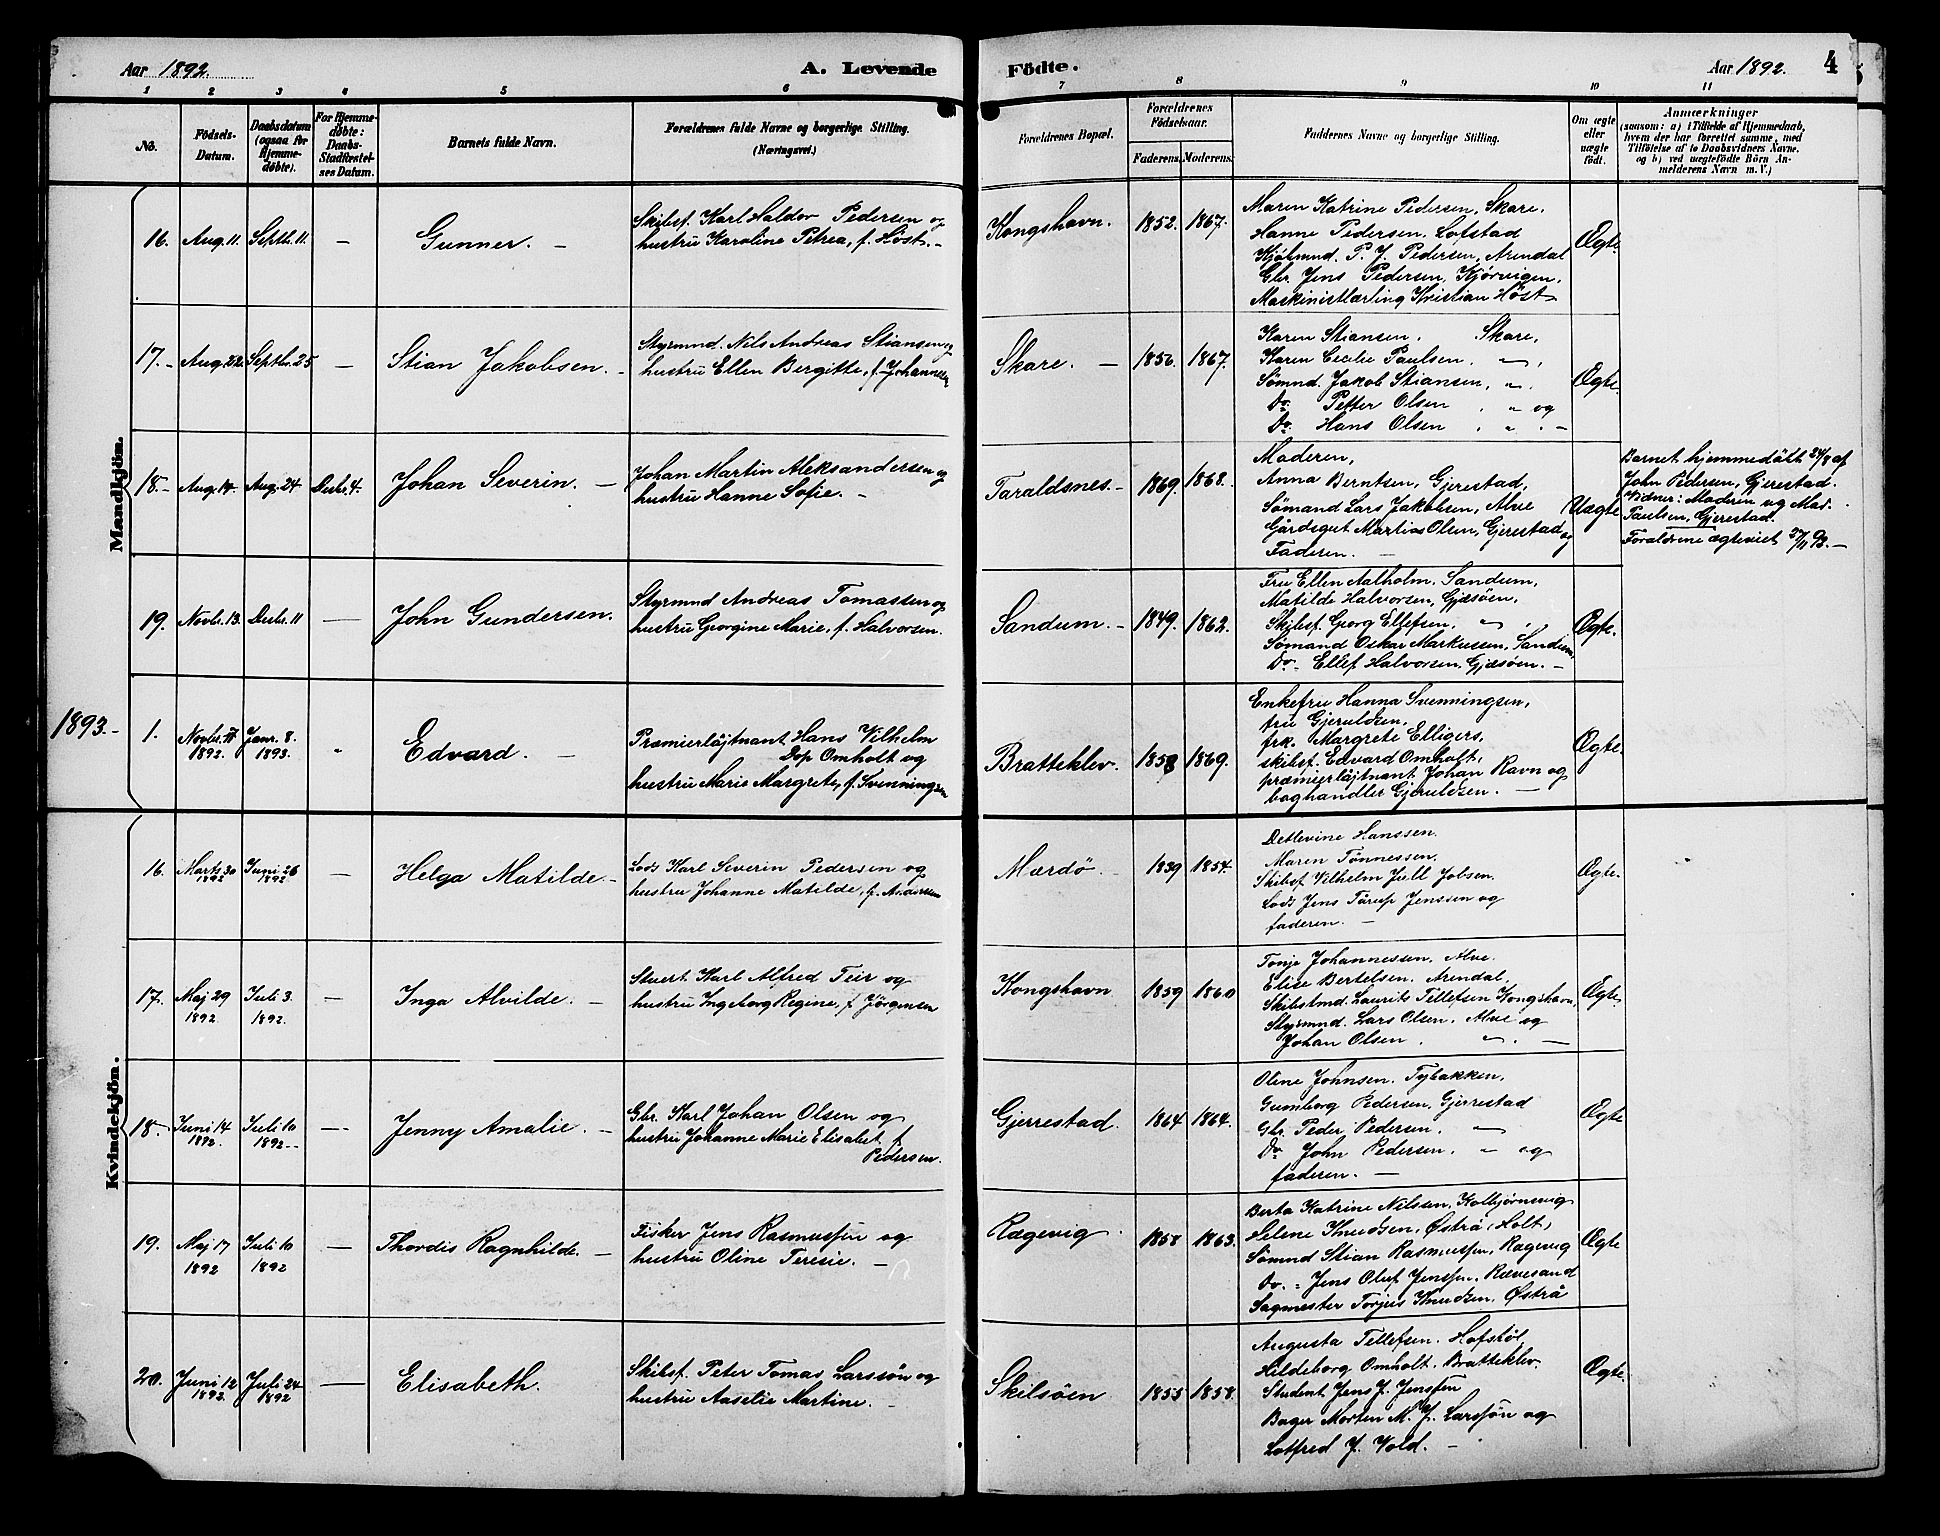 Aar 1892. A. Levende Födte. Aar 1892. 4
1 2 3 4 5 6 7 8 9 10 11
No.
Födsels-
Datum.
Daabsdatum
(ogsaa for
Hjemme-
döbte).
For Hjemme-
döbte:
Daabs-
Stadfæstel-
ses Datum.
Barnets fulde Navn.
Forældrenes fulde Navne og borgerlige Stilling.
(Næringsvei.)
Forældrenes Bopæl.
Forældrenes
Födselsaar.
Faderens. Moderens.
Faddernes Navne og borgerlige Stilling.
Om ægte
eller
uægte
födt.
Anmærkninger
(saasom: a) i Tilfælde af Hjemmedaab,
hvem der har forrettet samme, med
Tilföielse af to Daabsvidners Navne.
og b) ved uægtefödte Börn An-
melderens Navn m. V.)
Mandkjön.
16. Aug. 11. Septb. 11. — Gunner. —
Skibsf. Karl Haldor Pedersen og
hustru Karoline Petrea, f. Höst. –
Kongshavn. 1852. 1867.
Maren Katrine Pedersen, Skare.
Hanne Pedersen. Lofstad
Kjöbmnd. P. J. Pedersen, Arendal
Gbr. Jens Pedersen, Kjørvigen.
Maskinistlærling Kristian Höst
Ægte.
17. – Aug. 22. Septb. 25 — Stian Jakobsen. –
Styrmnd. Nils Andreas Stiansen og
hustru Ellen Bergitte, f. Johannesen
Skare. – 1856. 1867.
Karen Stiansen. Skare,
Karen Cecilie Paulsen. „ ,
Sömnd. Jakob Stiansen, „ .
Do. Petter Olsen . „ og
Do. Hans Olsen . „ . –
Ægte.
18. – Aug. 14. Aug. 24 Decbr. 4. Johan Severin. –
Johan Martin Aleksandersen og
hustru Hanne Sofie. –
Taraldsnes. – 1869. 1868.
Moderen,
Anna Berntsen, Gjerestad,
Sömand Lars Jakobsen, Alve
Gårdsgut Martin Olsen, Gjerestad og
Faderen. –
Uægte
Barnet hjemmedöbt 24/8 af
John Pedersen, Gjerestad.
Vidner: Moderen og Mad.
Paulsen, Gjerestad.
Forældrene ægteviet 27/11 92. –
19. Novbr. 13. Decbr. 11 — John Gundersen.
Styrmnd Andreas Tomassen og
hustru Georgine Marie, f. Halvorsen.
Sandum. – 1849. 1862.
Fru Ellen Aalholm. Sandum,
Matilde Halvorsen, Gjesöen,
Skibsf. Georg Ellefsen. „ .
Sömand Oskar Markussen, Sandum,
Do. Ellef Halvorsen, Gjesöen. –
Ægte.
1893. –
1. Novbr. 1892. Janr. 8. 1893. „ Edvard. –
Præmierløjtnant Hans Vilhelm
Dop Omholt og
hustru Marie Margrete, f. Svenningsen
Bratteklev. 1858 1869.
Enkefru Hanna Svenningsen,
fru Gjeruldsen,
frk. Margrete Elligers,
skibsf. Edvard Omholt,
præmierløjtnant Johan Ravn og
boghandler Gjeruldsen. –
Ægte.
Kvindekjön.
16. Marts 30 1892 Juni 26 1892 — Helga Matilde. –
Lods Karl Severin Pedersen og
hustru Johanne Matilde, f. Andersen
Mærdö. 1839 1854.
Detlevine Hanssen.
Maren Tönnessen.
Skibsf. Vilhelm Juell Jebsen.
Lods Jens Tårup Jenssen og
faderen. –
Ægte.
17. Maj 29 1892 Juli 3. 1892. — Inga Alvilde. –
Stuert. Karl Alfred Teir og
hustru Ingeborg Regine, f Jörgensen
Kongshavn 1859 1860
Tonje Johannessen, Alve.
Elise Bertelsen, Arendal,
Skibstmd. Laurits Tellefsen Kongshavn,
Styrmnd. Lars Olsen. Alve og
Johan Olsen . „ . –
Ægte.
18. Juni 14 1892. Juli 10 1892. – — Jenny Amalie. –
Gbr. Karl Johan Olsen og
hustru Johanne Marie Elisabet, f
Pedersen.
Gjerrestad. 1864 1864.
Oline Johnsen. Tybakken,
Gumborg Pedersen, Gjerrestad
Gbr. Peder Pedersen. „
Do. John Pedersen. „ og
faderen. –
Ægte
19. Maj 17 1892 Juli 10 1892 — Thordis Ragnhilde. –
Fisker Jens Rasmussen og
hustru Oline Teresie. –
Rægevig 1858 1863.
Berta Katrine Nilsen, Kolbjørnsvig
Helene Knudsen, Østrå (Holt)
Sömnd Stian Rasmussen, Rægevig
Do. „ Jens Oluf Jenssen. Rævesand
Sagmester Torjus Knudsen. Østrå
Ægte
20. Juni 12 1892. Juli 24 1892 — Elisabeth.
Skibsf. Peter Tomas Larssön og
hustru Aaselie Martine. –
Skilsöen 1855 1858.
Augusta Tellefsen. Hofstöl,
Hildeborg Omholt. Bratteklev.
Student Jens J. Jenssen
Bager Morten M. J. Larssön og
Lotfred J. Vold. –
Ægte.